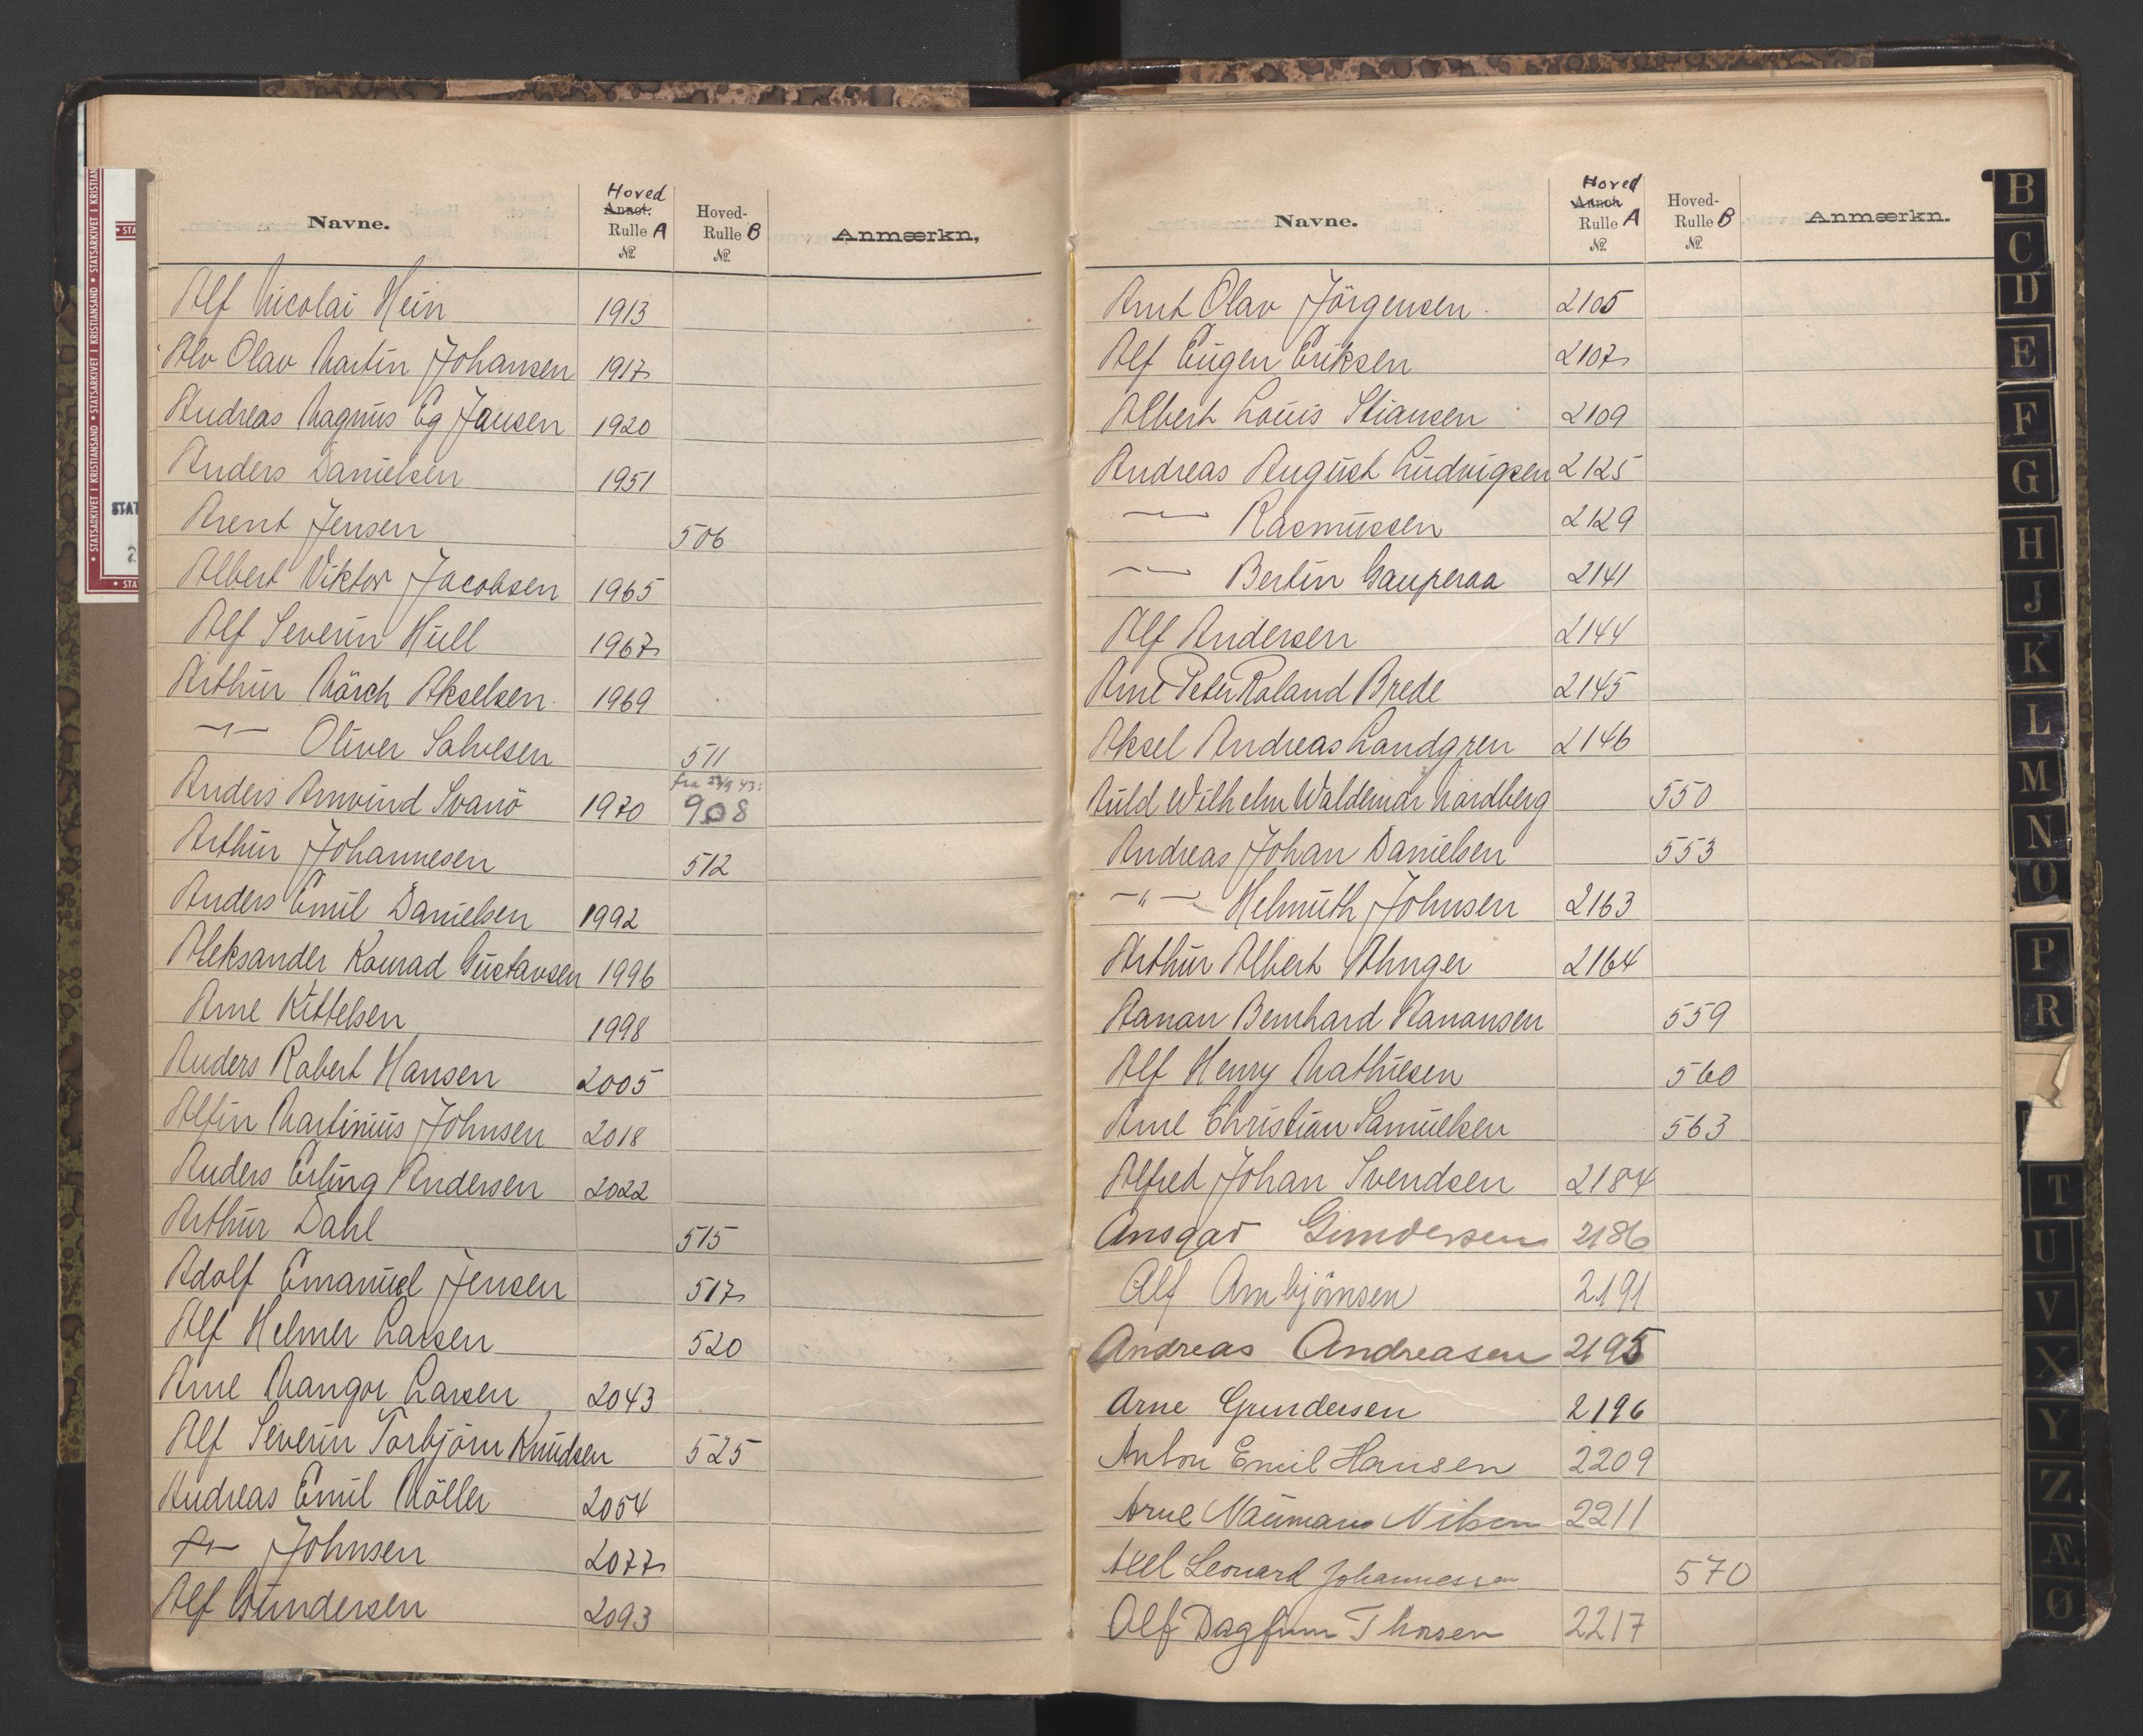 Navne. Hoved Annot. Rulle A № Hoved-Rulle B № Anmærkn,
Alf Nicolai Hein 1913
Alv Olav Martin Johansen 1917
Andreas Magnus Eg Jansen 1920
Anders Danielsen 1951
Arent Jensen 506
Albert Viktor Jacobsen 1965
Alf Severin Hull 1967
Arthur Mörch Akselsen 1969
—"— Oliver Salvesen 511
fra 23/9 43:
Anders Arnvind Svanö 1970 908
Arthur Johannesen 512
Anders Emil Danielsen 1992
Aleksander Konrad Gustavsen 1996
Arne Kittelsen 1998
Anders Robert Hansen 2005
Alfin Martinius Johnsen 2018
Anders Erling Andersen 2022
Arthur Dahl 515
Adolf Emanuel Jensen 517
Alf Helmer Larsen 520
Arne Mangor Larsen 2043
Alf Severin Torbjörn Knudsen 525
Andreas Emil Möller 2054
—"— Johnsen 2077
Alf Gundersen 2093
Navne. Hoved Annot. Rulle A № Hoved-Rulle B № Anmærkn.
Arnt Olav Jörgensen 2105
Alf Eugen Eriksen 2107
Albert Louis Stiansen 2109
Andreas August Ludvigsen 2125
—"— Rasmussen 2129
—"— Bertin Gauperaa 2141
Alf Andersen 2144
Arne Peter Roland Brede 2145
Aksel Andreas Landgren 2146
Auld Wilhelm Waldemar Nordberg 550
Andreas Johan Danielsen 553
—"— Helmuth Johnsen 2163
Arthur Albert Ahnger 2164
Aanon Bernhard Aanonsen 559
Alf Henry Mathiesen 560
Arne Christian Samuelsen 563
Alfred Johan Svendsen 2184
Ansgar Gundersen 2186
Alf Arnbjörnsen 2191
Andreas Andreasen 2195
Arne Gundersen 2196
Anton Emil Hansen 2209
Arne Naumann Nilsen 2211
Axel Leonard Johannessen 570
Alf Dagfinn Thorsen 2217
B
C
D
E
F
G
H
J
K
L
M
N
O
P
R
T
U
V
X
Y
Z
Æ
Ø
STATSARKIVET I KRISTIANSAND • STATSARKIVET I KRISTIANSAND • STATSARKIVET I KRISTIAN